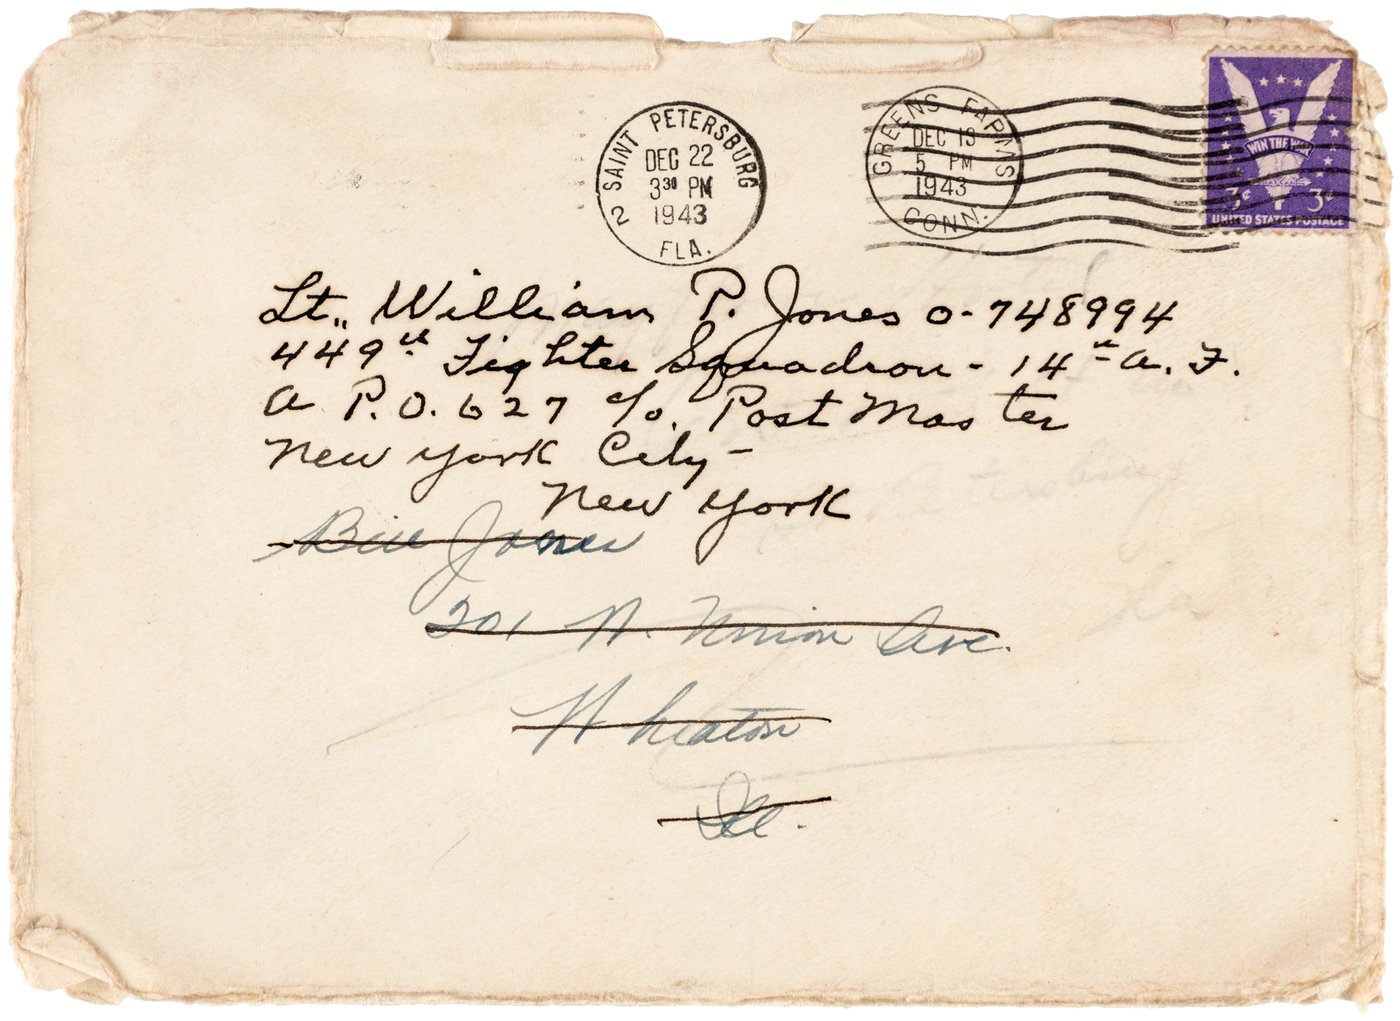 2 SAINT PETERSBURG
DEC 22
3 30 PM
1943
FLA.
GREENS FARMS
DEC 13
5 PM
1943
CONN.
WIN THE WAR
3¢ 3¢
UNITED STATES POSTAGE
Lt., William P. Jones O-748994
449th Fighter Squadron - 14th A. F.
A P.O. 627 c/o. Post Master
New York City-
New York
Bill Jones
201 N. Union Ave.
Wheaton
Ill.